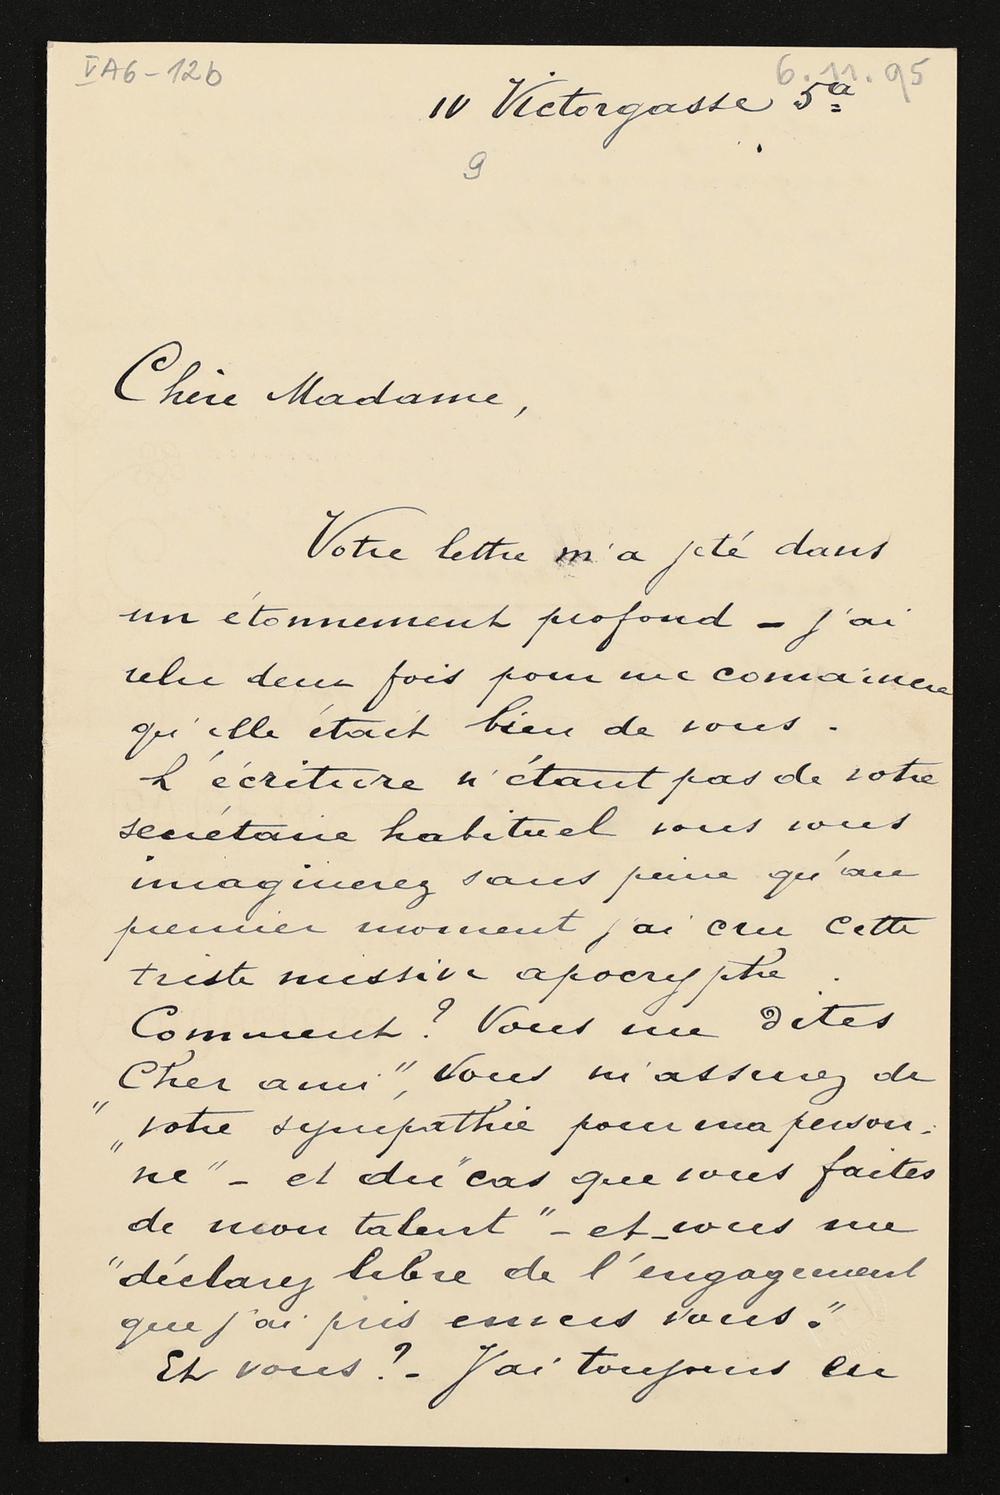 VA6-12b
6.11.95
IV Victorgasse 5a
9
Chère Madame,
Votre lettre m'a jeté dans
un étonnement profond – j'ai
relu deux fois pour me convaincre
qu'elle était bien de vous.
L'écriture n'étant pas de votre
secrétaire habituel vous vous
imaginerez sans peine qu'au
premier moment j'ai cru cette
triste missive apocryphe.
Comment? Vous me dites
Cher ami", Vous m'assurez de
"„votre sympathie pour ma person-
"ne" – et du "cas que vous faites
de mon talent" – et vous me
"déclarez libre de l'engagement
que j'ai pris envers vous."
Et vous? – J'ai toujours cru